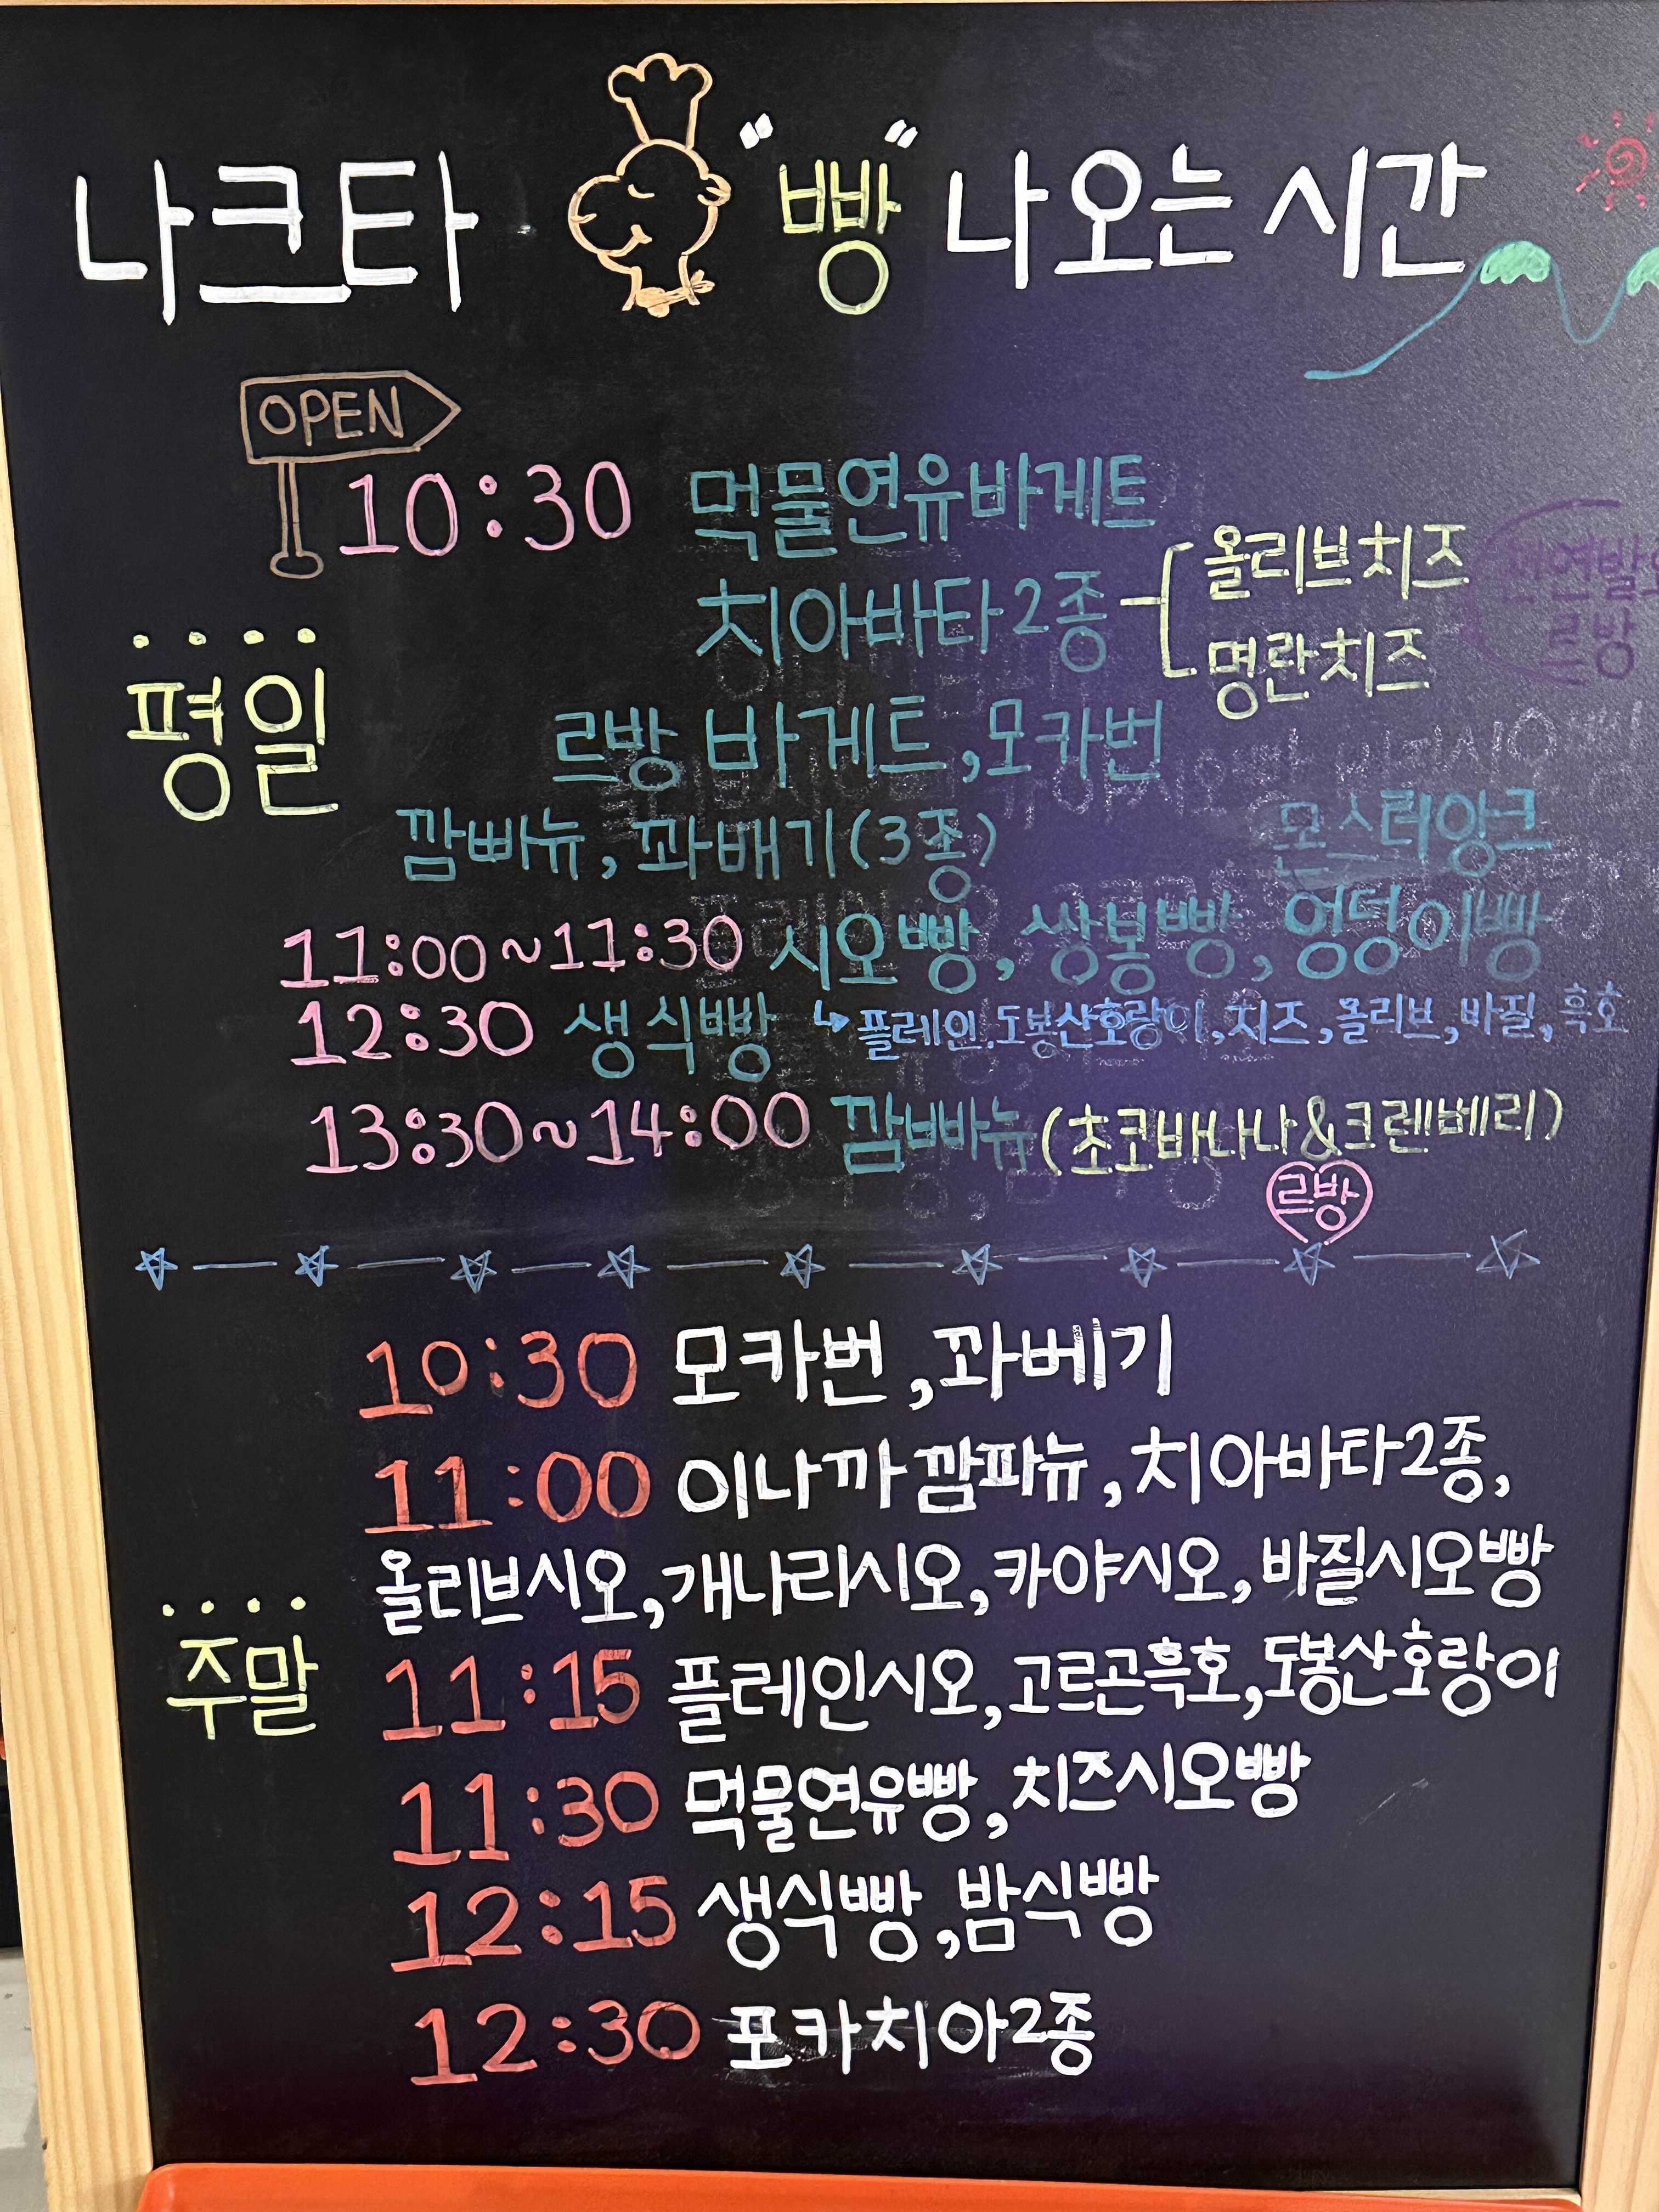 나크타 "빵" 나오는 시간
OPEN
10:30 먹물연유바게트
치아바타2종
올리브치즈
명란치즈
르방
평일
르방 바게트, 모카번
깜빠뉴, 꽈배기(3종)
몬스터앙크
11:00~11:30 시오빵, 쌍봉빵, 엉덩이빵
12:30 생식빵
↳ 플레인, 도봉산호랑이, 치즈, 올리브, 바질, 흑호
13:30~14:00 깜빠뉴(초코바나나&크렌베리)
르방
10:30 모카번, 꽈베기
11:00 이나까 깜파뉴, 치아바타2종,
올리브시오, 개나리시오, 카야시오, 바질시오빵
주말
11:15 플레인시오, 고르곤흑호, 도봉산호랑이
11:30 먹물연유빵, 치즈시오빵
12:15 생식빵, 밤식빵
12:30 포카치아2종